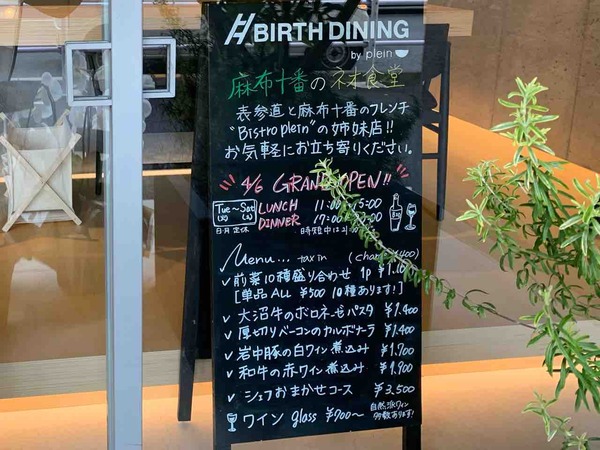 BIRTH DINING
by plein
麻布十番のネオ食堂
表参道と麻布十番のフレンチ
"Bistro plein"の姉妹店!!
お気軽にお立ち寄りください。
4/6 GRAND OPEN!!
Tue～Sat LUNCH 11:00
(火) (土) DINNER 17:00
日月定休 時短中は
Menu... tax in (charge ¥400)
✓ 前菜10種盛り合わせ 1p
[単品ALL ¥500 10種あります!]
✓ 大沼牛のボロネーゼパスタ ¥1.400
✓ 厚切りベーコンのカルボナーラ ¥1.400
✓ 岩中豚の白ワイン煮込み ¥1.700
✓ 和牛の赤ワイン煮込み ¥1.900
✓ シェフおまかせコース ¥3,500
ワイン glass ¥700～
自然派ワイン
多数あります!